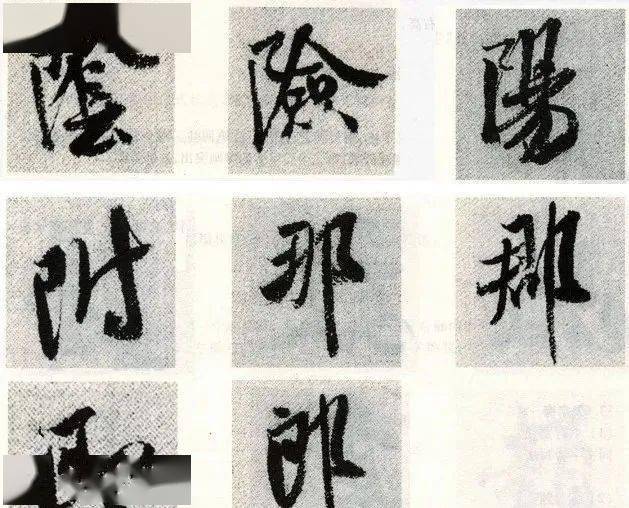 陰 險 陽
附 那
郎